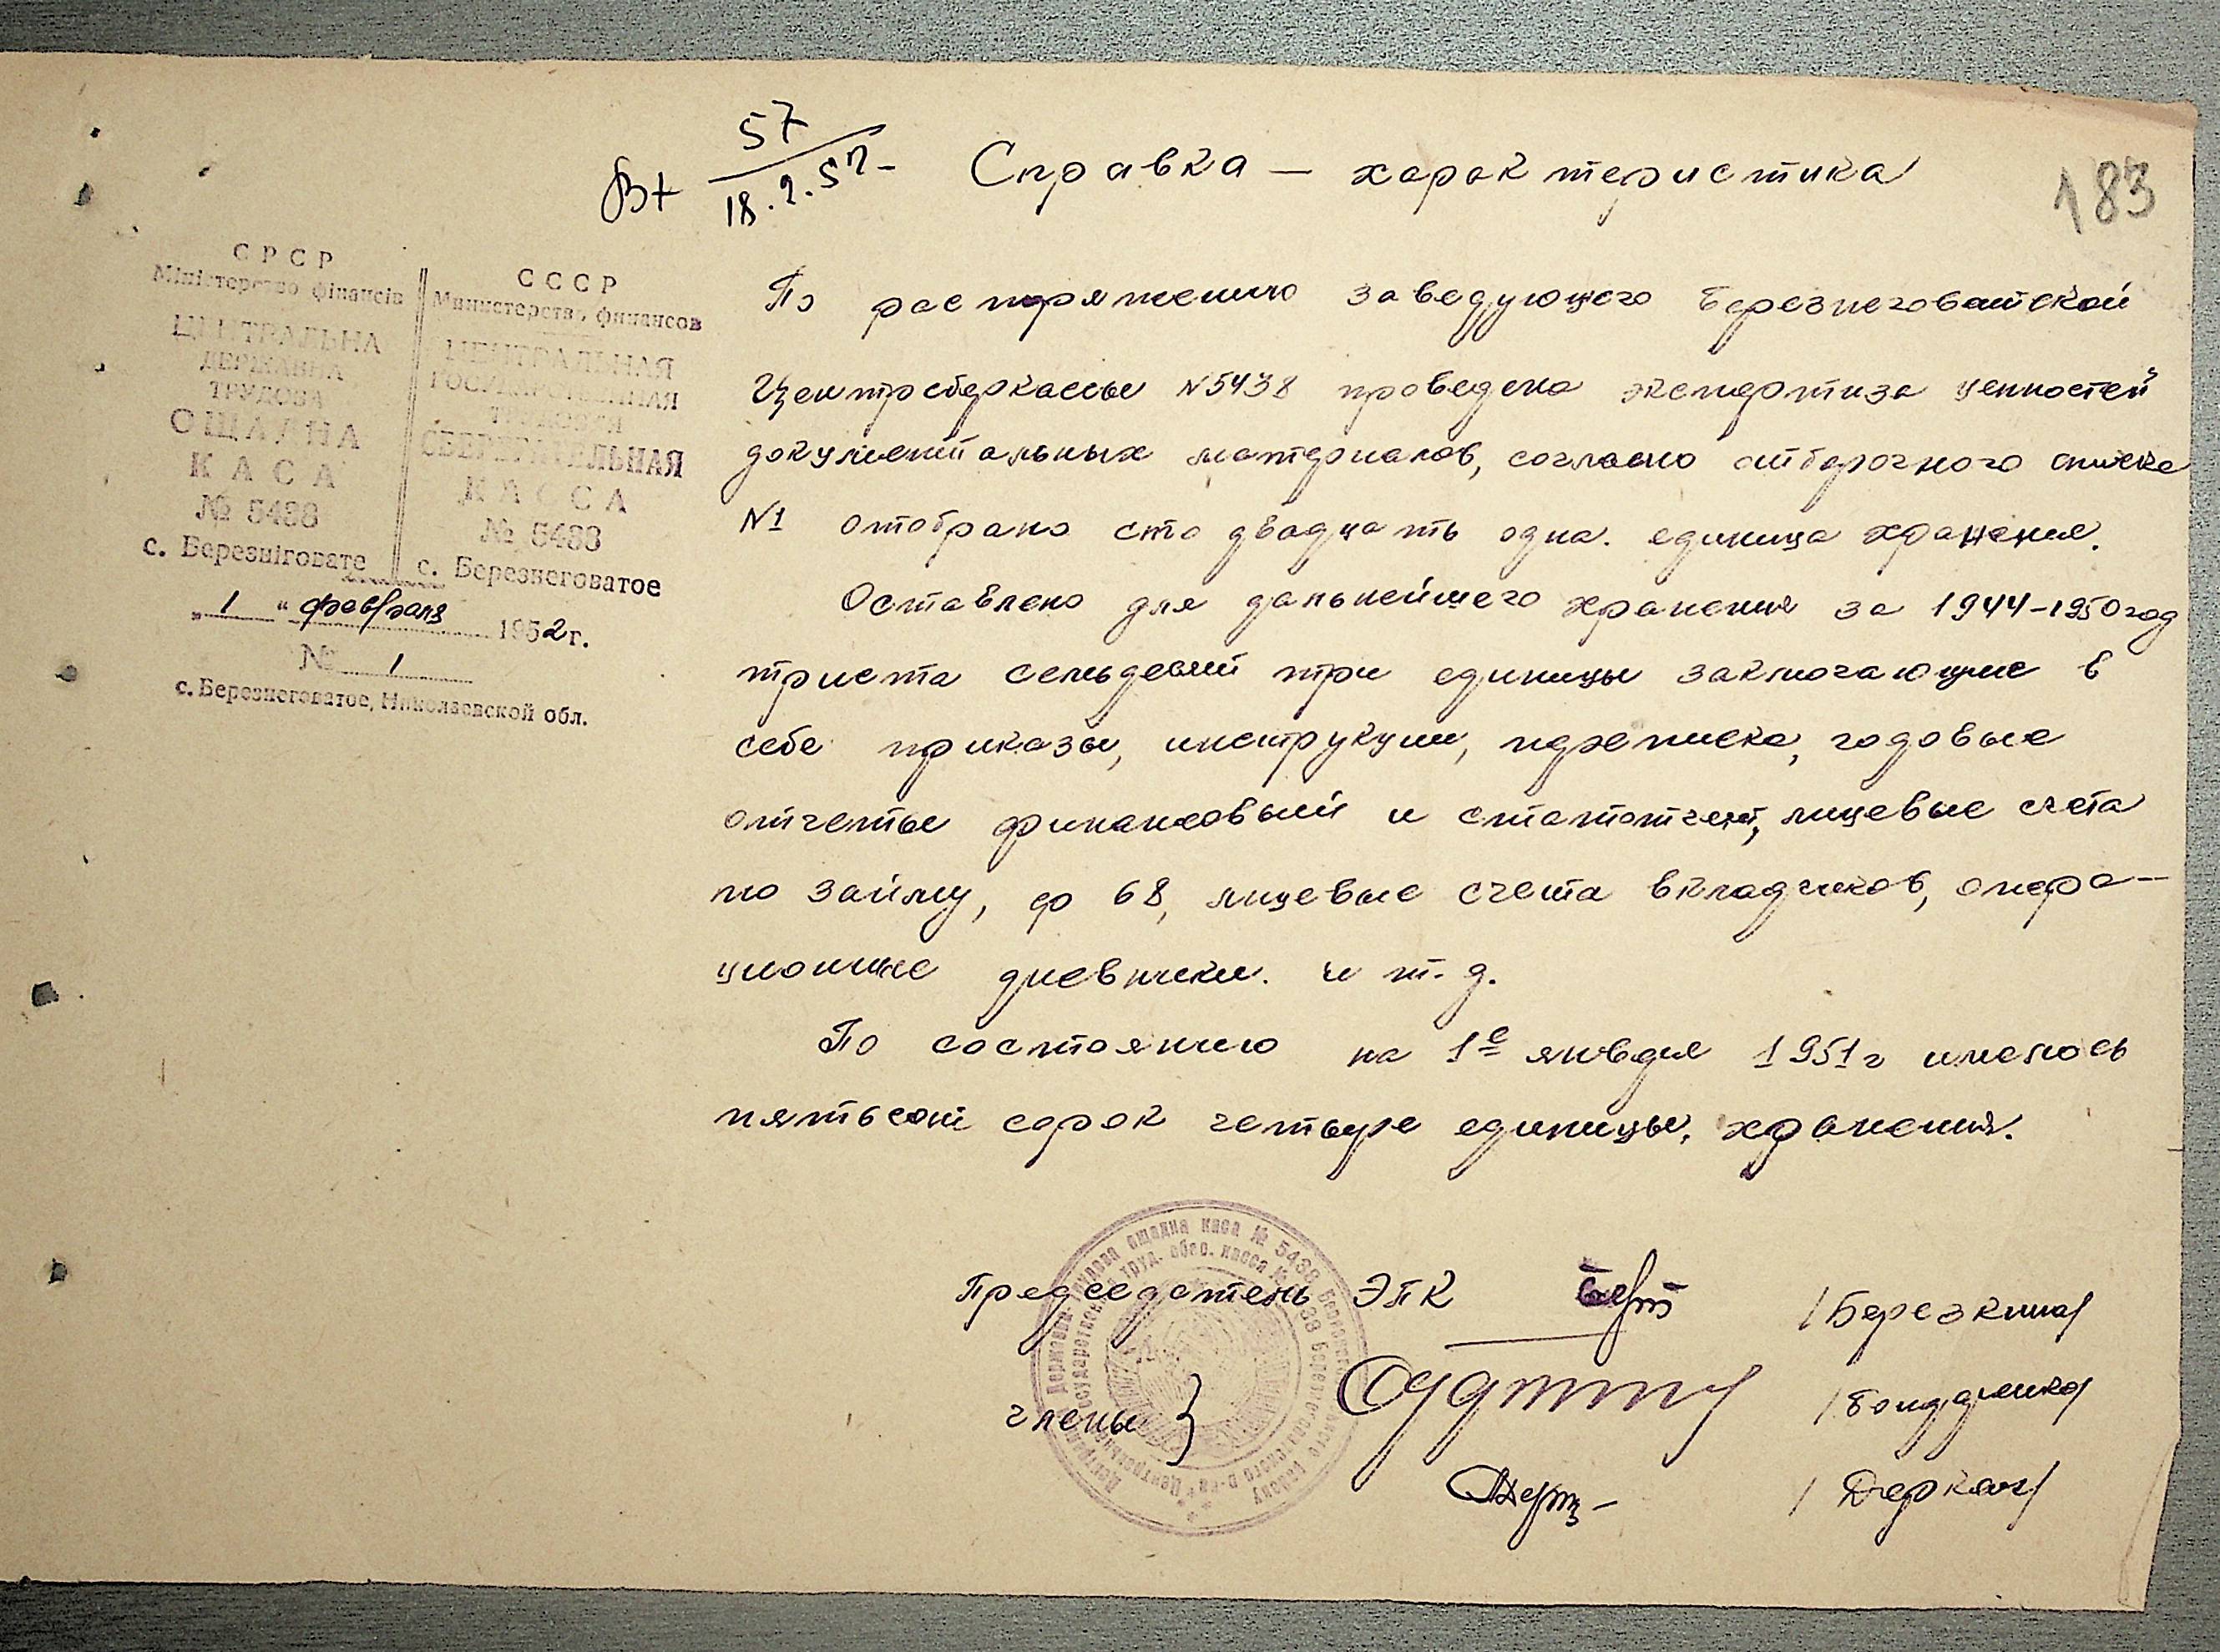 Вх 57
18.2.52
Справка — характеристика
183
СРСР
Міністерство фінансів
ЦЕНТРАЛЬНА
ДЕРЖАВНА
ТРУДОВА
ОЩАДНА
КАСА
№ 5438
с. Березнiговате
СССР
Министерство финансов
ЦЕНТРАЛЬНАЯ
ГОСУДАРСТВЕННАЯ
ТРУДОВАЯ
СБЕРЕГАТЕЛЬНАЯ
КАССА
№ 5438
с. Березнеговатое
„ 1 " февраля 1952 г.
№ 1
с. Березнеговатое, Николаевской обл.
По распоряжению заведующего Березнеговатской
Центрсберкассы №5438 проведена экспертиза ценностей
документальных материалов, согласно отборочного списка
№1 отобрано сто двадцать одна. единица хранения.
Оставлено для дальнейшего хранения за 1944-1950 год
триста семьдесят три единицы заключающие в
себе приказы, инструкции, переписка, годовые
отчеты финансовый и статотчет, лицевые счета
по займу, ф 68, лицевые счета вкладчиков, опера-
ционные дневники. и т.д.
По состоянию на 1е января 1951г имелось
пятьсот сорок четыре единицы. хранения.
Председатель ЭПК /Березкина/
члены } /Бондаренко/
/Деркач/